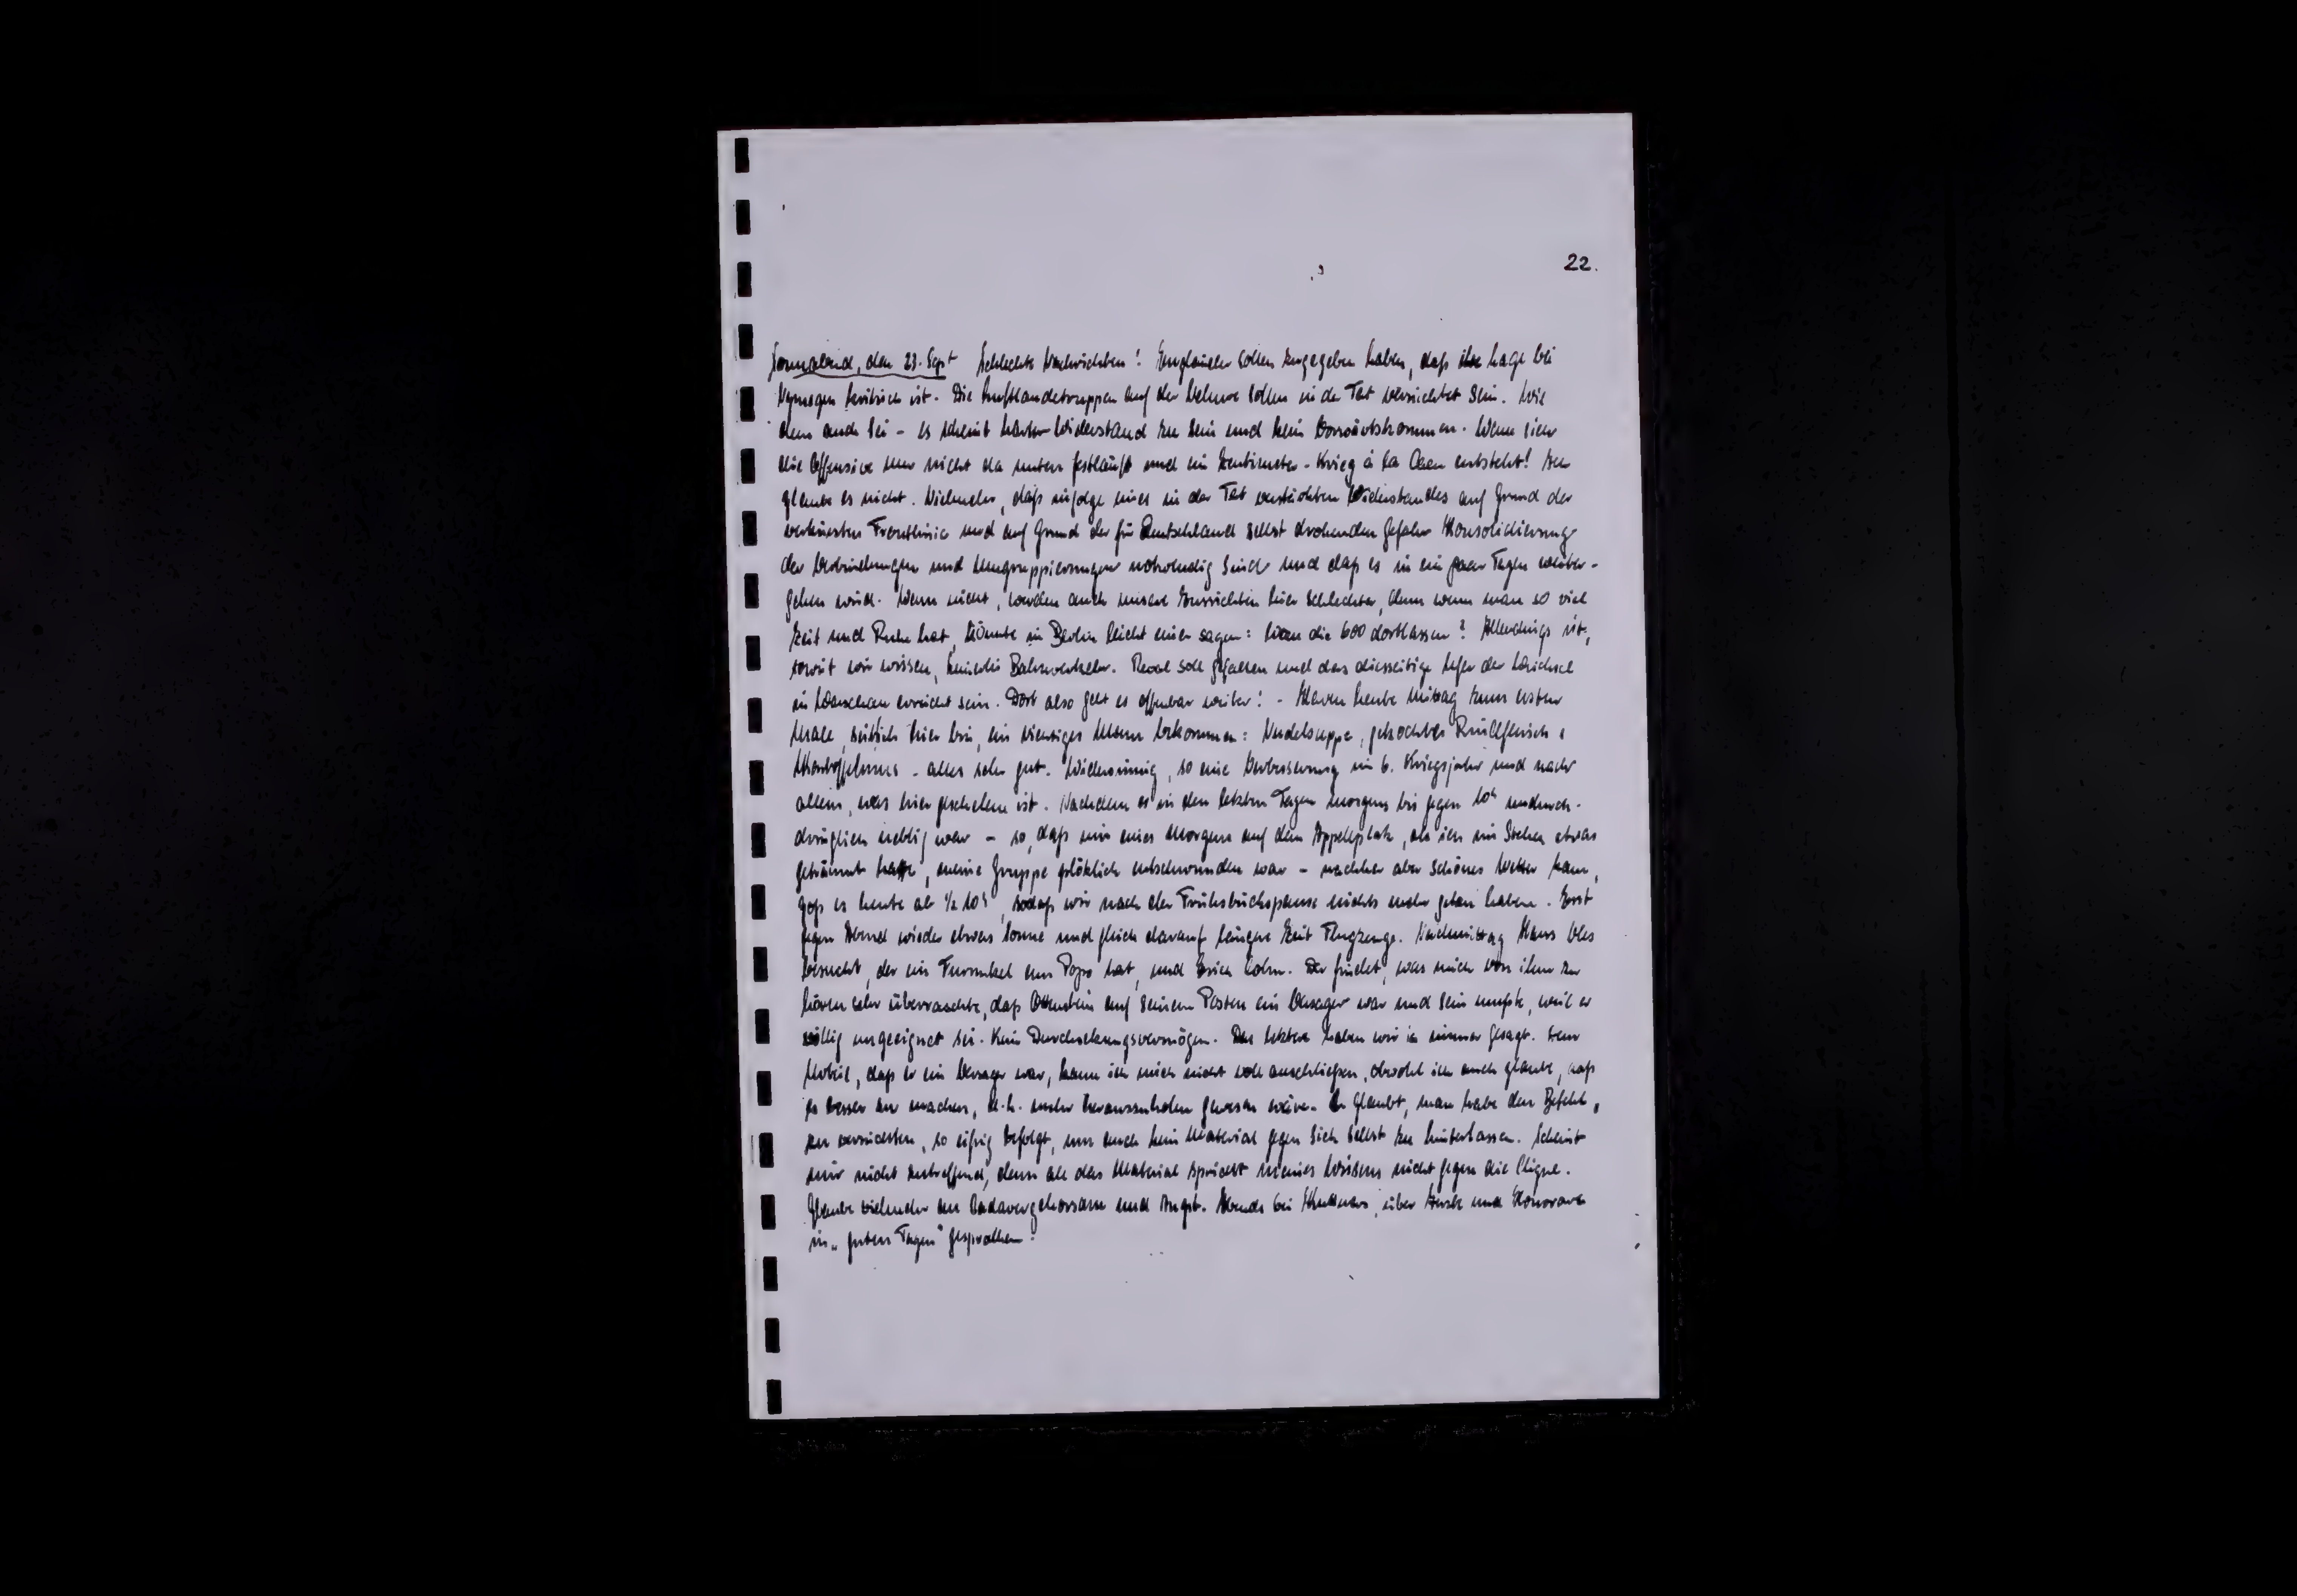 22.
Sonnabend, den 23. Sept Schlechte Nachrichten! Engländer sollen zugegeben haben, daß ihre Lage bei
Nymegen kritisch ist. Die Luftlandetruppen auf der Veluwe sollen in der Tat vernichtet sein. Wie
dem auch sei - es scheint harter Widerstand zu sein und kein Vorwärtskommen. Wenn sich
die Offensive nur nicht da unten festläuft und ein Zentimeter-Krieg à la Caen entsteht! Ich
glaube es nicht. Vielmehr, daß infolge eines in der Tat verstärkten Widerstandes auf Grund der
verkürzten Frontlinie und auf Grund der für Deutschland selbst drohenden Gefahr Konsolidierung
der Verbindungen und Umgruppierungen notwendig sind und daß es in ein paar Tagen weiter-
gehen wird. Wenn nicht, werden auch unsere Aussichten hier schlechter, denn wenn man so viel
Zeit und Ruhe hat, könnte in Berlin leicht einer sagen: die 600 dortlassen? Allerdings ist,
soweit wir wissen, keinerlei Bahnverkehr. Reval soll gefallen und das diesseitige Ufer der Weichsel
in Warschau erreicht sein. Dort also geht es offenbar weiter! - Haben heute Mittag zum ersten
Male, seit ich hier bin, ein richtiges Menu bekommen: Nudelsuppe, gekochtes Rindfleisch,
Kartoffelmus - alles sehr gut. Widersinnig, so eine Verbesserung im 6. Kriegsjahr und nach
allem, was hier geschehen ist. Nachdem es in den letzten Tagen morgens bis gegen 10h undurch-
dringlich neblig war - so, daß mir eines Morgens auf dem Appellplatz, als ich im Stehen etwas
geträumt hatte, meine Gruppe plötzlich entschwunden war - nachher aber schönes Wetter kam,
goß es heute ab ½ 10h, sodaß wir nach der Frühstückspause nichts mehr getan haben. Erst
gegen Abend wieder etwas Sonne und gleich darauf längere Zeit Flugzeuge. Nachmittag Hans
besucht, der ein Furunkel am Popo hat, und Erich. Der findet, was mich von ihm zu
hören sehr überraschte, daß Ottenstein auf seinem Posten ein Versager war und sein mußte, weil er
völlig ungeeignet sei. Kein Durchsetzungsvermögen. Das letztere haben wir ja immer gesagt. Dem
Urteil, daß er ein Versager war, kann ich mich nicht voll anschließen, obwohl ich auch glaube, daß
es besser zu machen, d.h. mehr herauszuholen gewesen wäre. Er glaubt, man habe den Befehl,
zu vernichten, so eifrig befolgt, um auch kein Material gegen sich selbst zu hinterlassen. Scheint
mir nicht zutreffend, denn all das Material spricht meines Wissens nicht gegen die Clique.
Glaube vielmehr an Kadavergehorsam und Angst. Abends bei, über Ärzte und Honorare
in „guten Tagen" gesprochen.